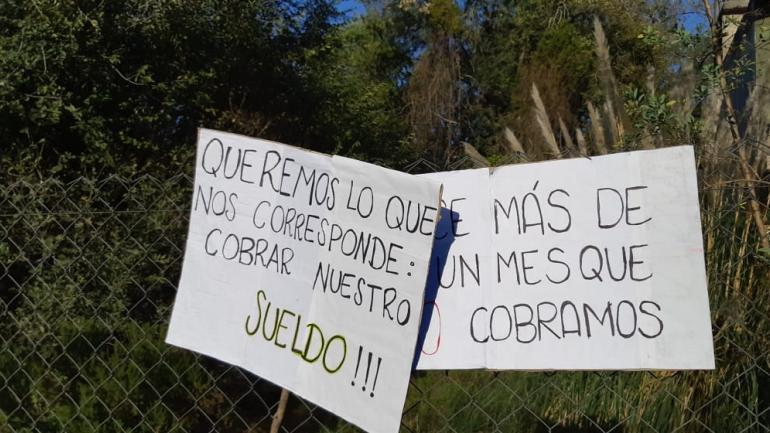 QUEREMOS LO QUE
NOS CORRESPONDE:
COBRAR NUESTRO
SUELDO!!!
MÁS DE
UN MES QUE
COBRAMOS